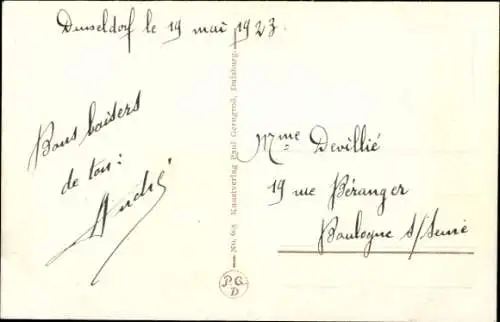 Dusseldorf le 19 mai 1923.
Bons baisers
de ton:
André
No. 63 Kunstverlag Paul Gerngroß, Duisburg.
P G
D
Mme Devillié
19 rue Béranger
Boulogne s/Seine